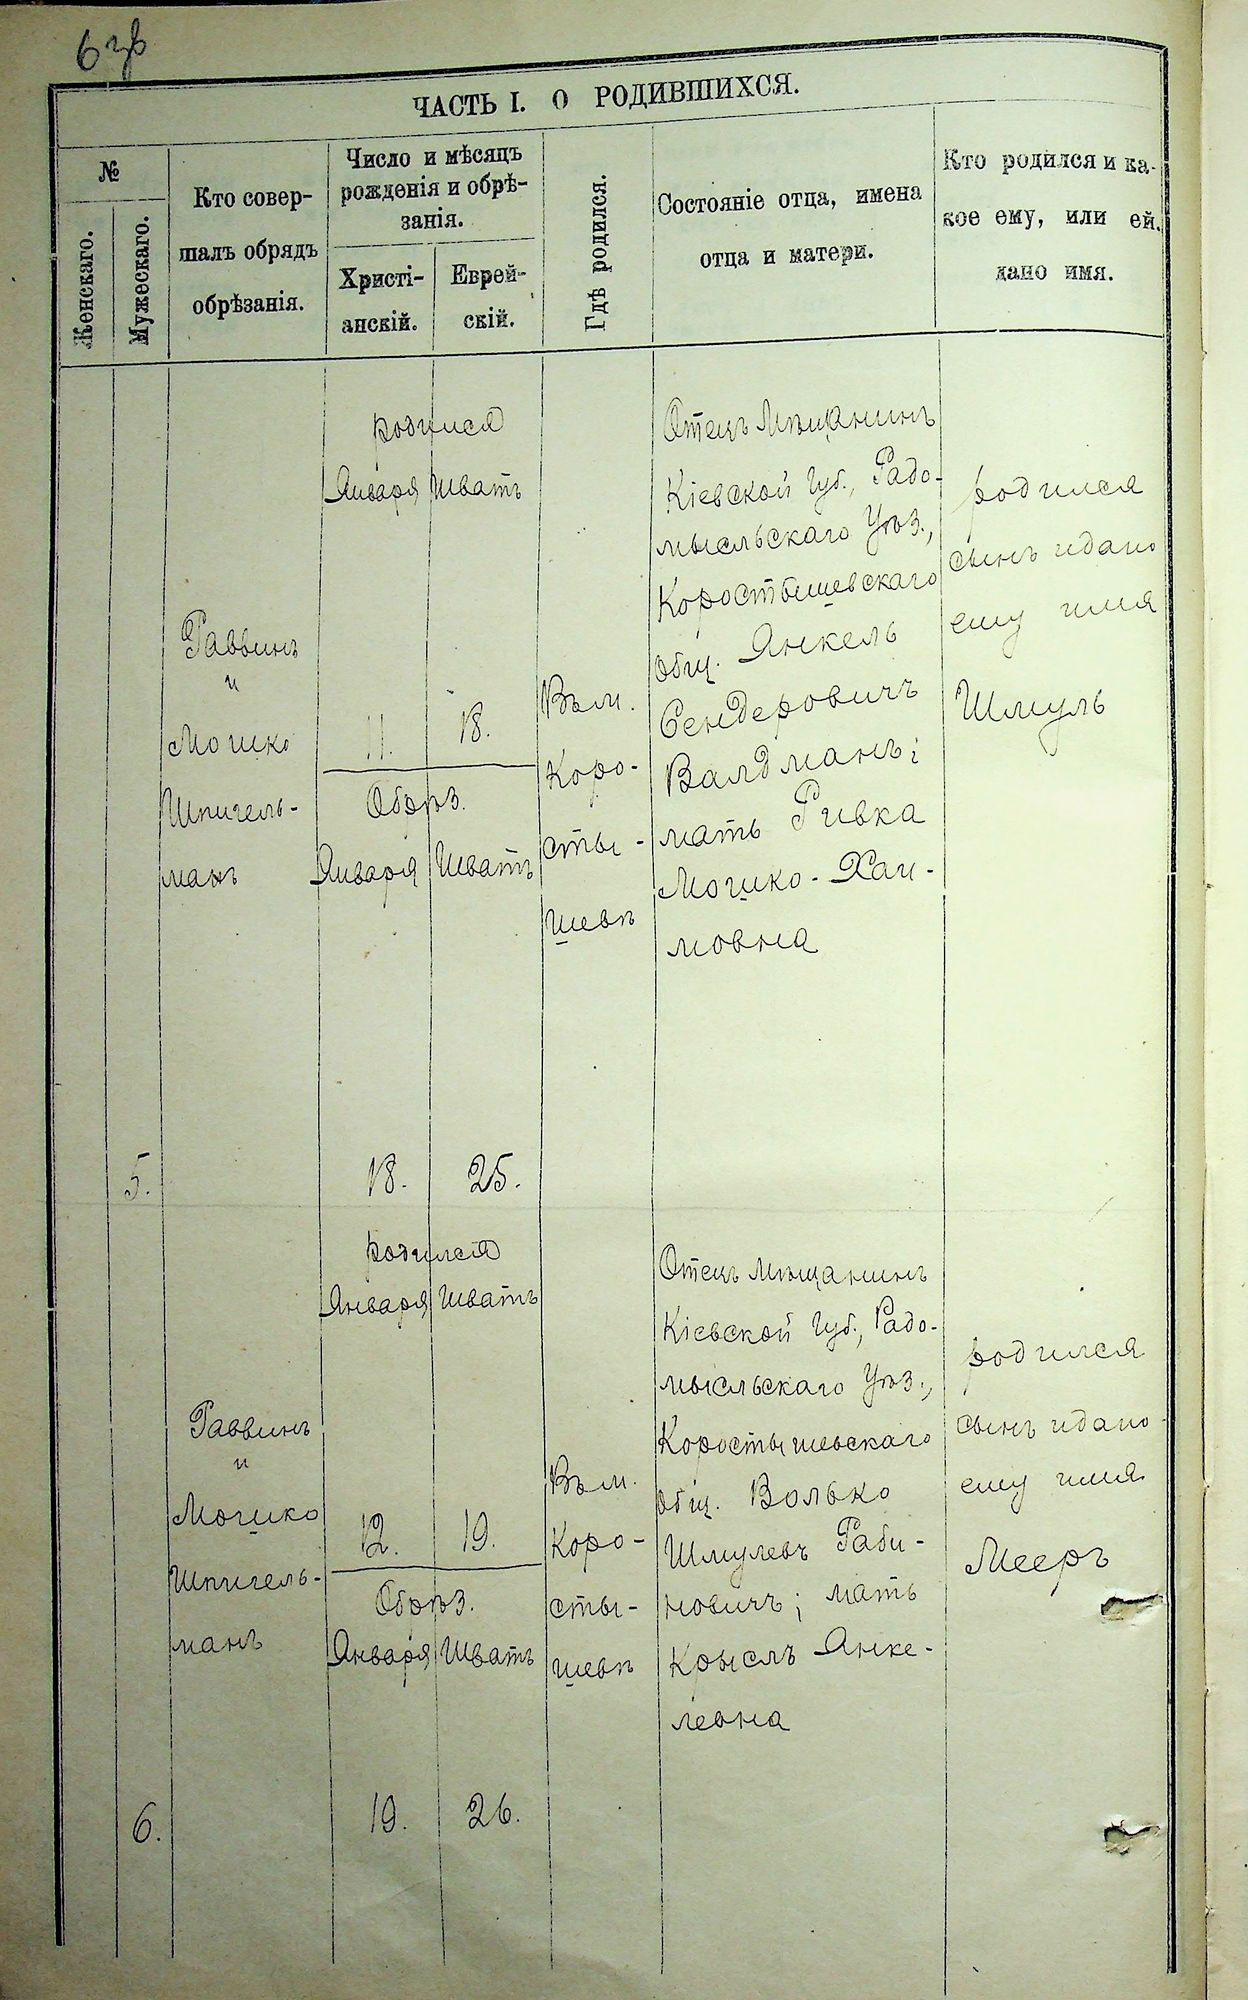 ЧАСТЬ I. О РОДИВШИХСЯ.
№
Женскаго.
Мужескаго.
Кто совер-
шалъ обрядъ
обрѣзанія.
Число и мѣсяцъ
рожденія и обрѣ-
занія.
Христі-
анскій.
Еврей-
скій.
Гдѣ родился.
Состояніе отца, имена
отца и матери.
Кто родился и ка-
кое ему, или ей,
дано имя.
5.
Раввинъ
и
Мошко
Шпигель-
манъ
родился
Января Шватъ
11. 18.
Обрѣз.
Января Шватъ
18. 25.
Въ м.
Коро-
сты-
шевѣ
Отецъ Мѣщанинъ
Кіевской Губ., Радо-
мысльскаго Уѣз.,
Коростышевскаго
общ. Янкель
Сендеровичъ
Валдманъ;
мать Ривка
Мошко-Хаи-
мовна
родился
сынъ и дано
ему имя
Шмуль
6.
Раввинъ
и
Мошко
Шпигель-
манъ
родился
Января Шватъ
12. 19.
Обрѣз.
Января Шватъ
19. 26.
Въ м.
Коро-
сты-
шевѣ
Отецъ мѣщанинъ
Кіевской Губ., Радо-
мысльскаго Уѣз.,
Коростышевскаго
общ. Волько
Шмулевъ Раби-
новичъ; мать
Крыслъ Янке-
левна
родился
сынъ и дано
ему имя
Мееръ